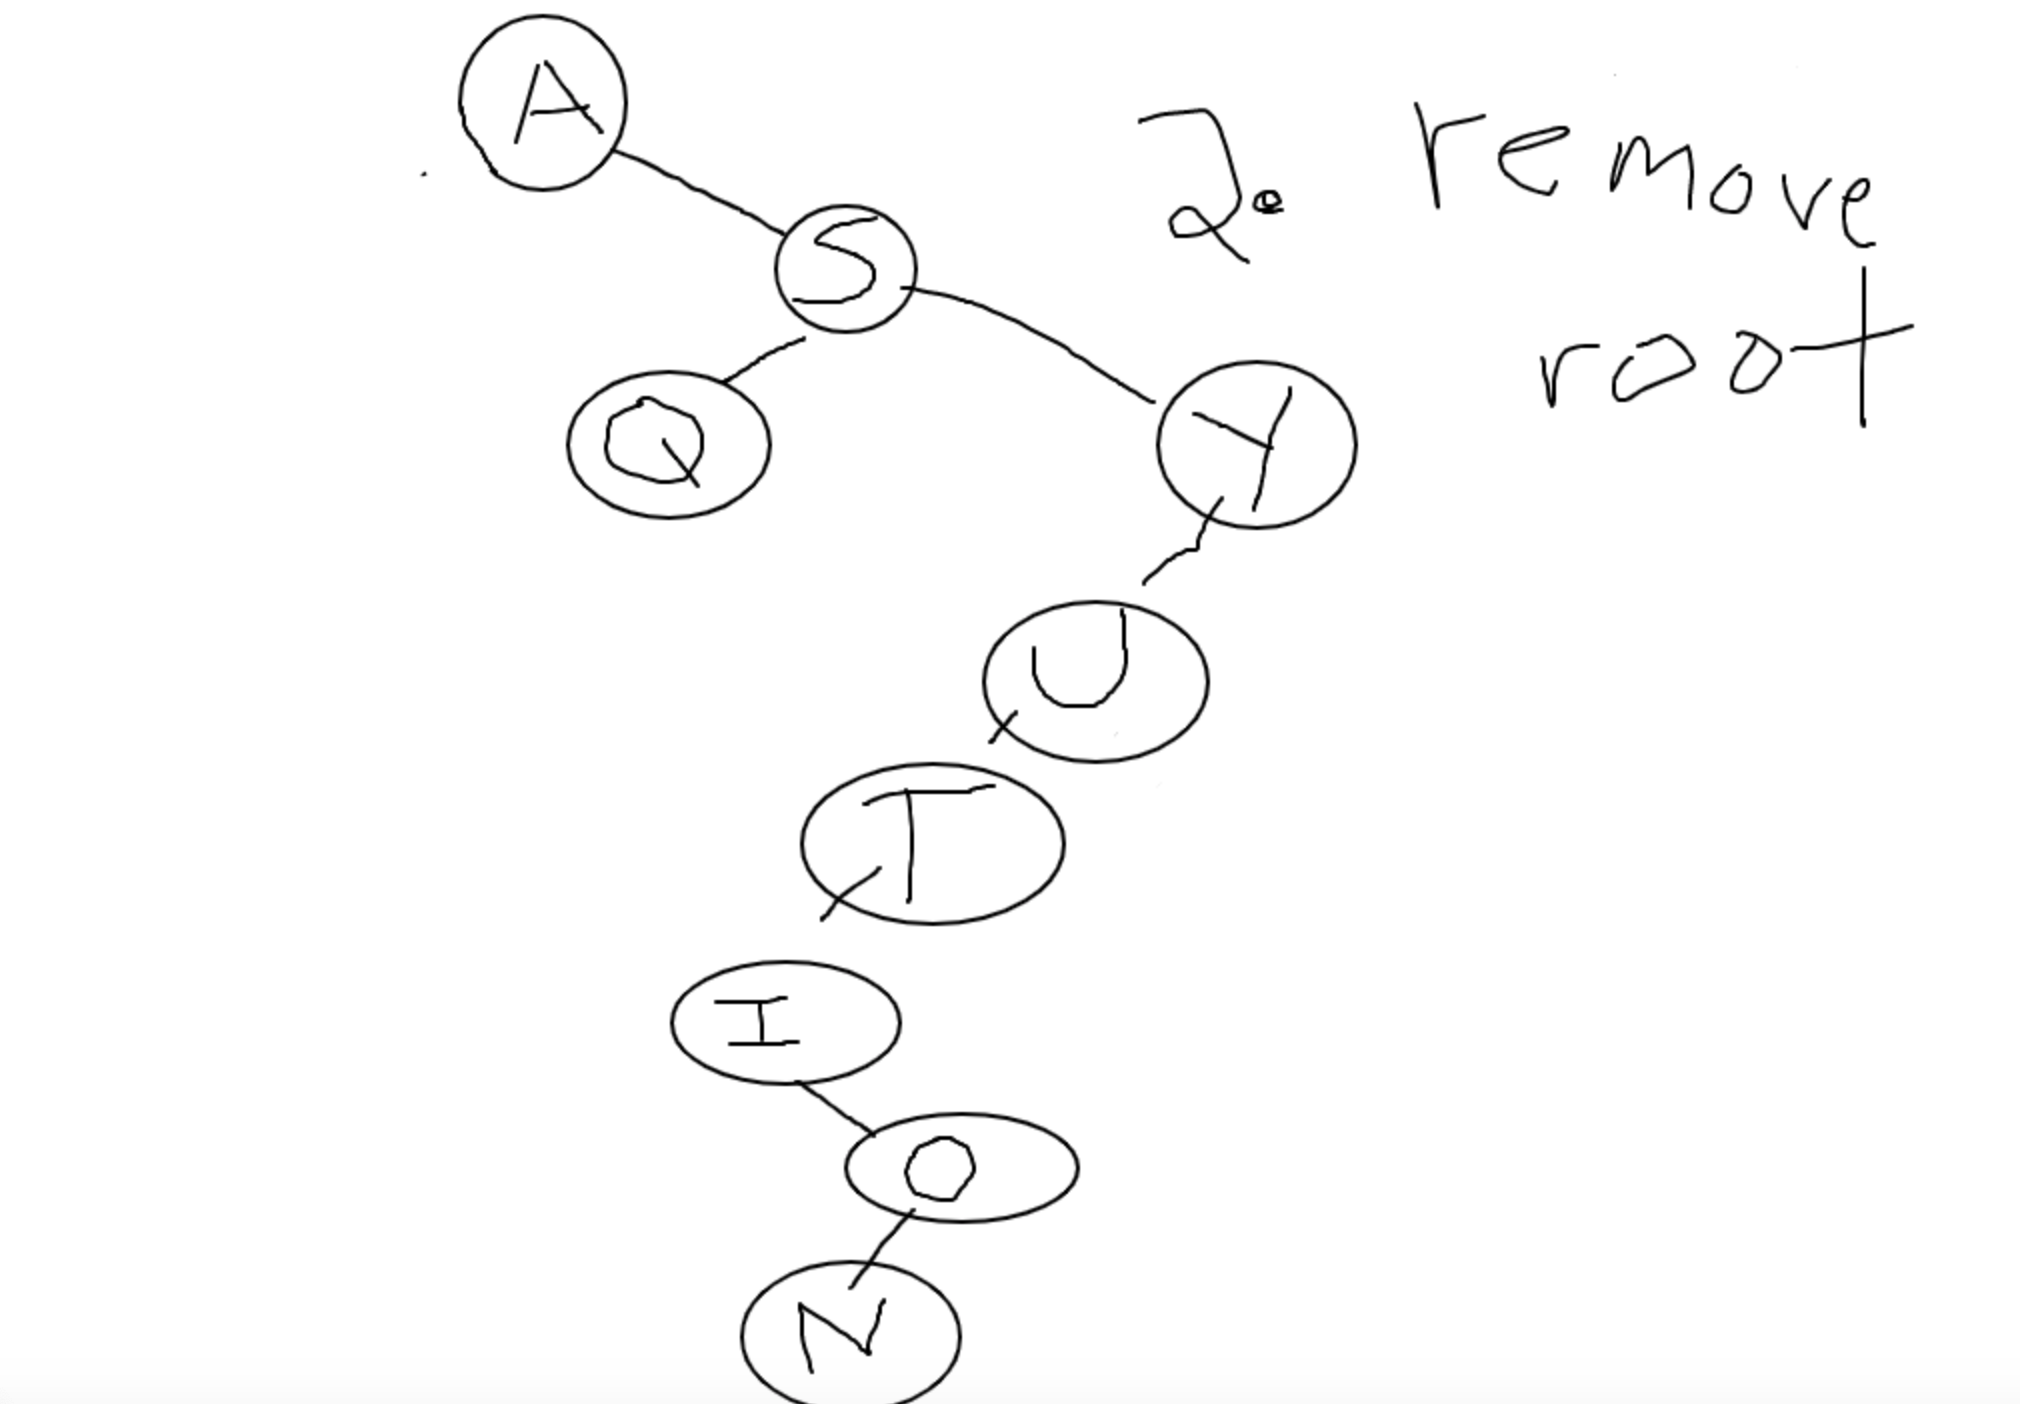 A
2. remove
S
root
Q
Y
U
T
I
O
N